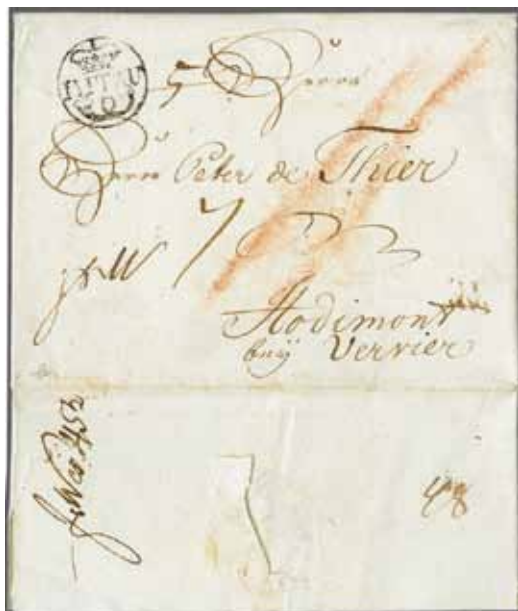 MITAU
Herrn
Herrn Peter de Thier
7
Hodimont
beij Vervier
48